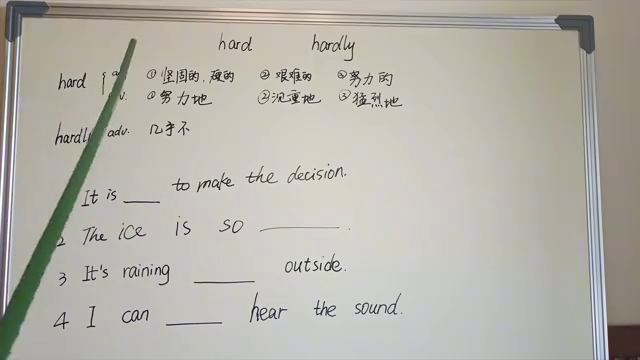 hard hardly
hard ①坚固的、硬的 ②艰难的 ③努力的
①努力地 ②沉重地 ③猛烈地
hardly adv. 几乎不
It is ____ to make the decision.
2 The ice is so ________.
3 It's raining ______ outside.
4 I can _____ hear the sound.